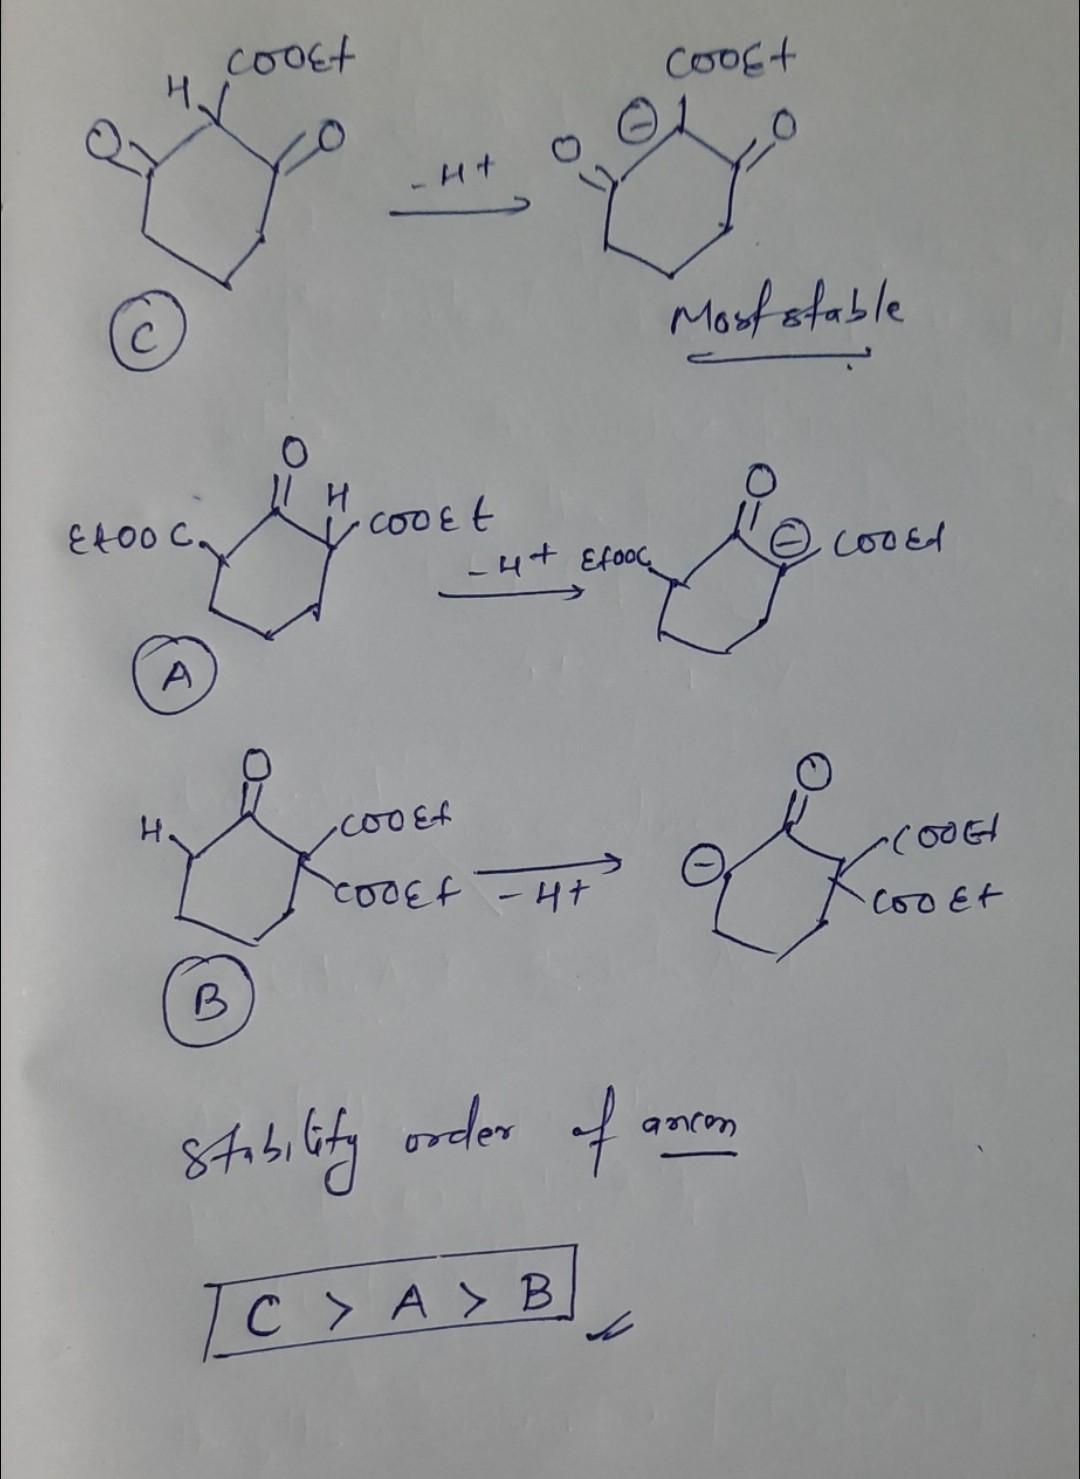 COOEt COOEt
H
O O ⊖ O O
-H+
C
Most stable
O O
H
EtOOC COOEt -H+ EtOOC ⊖ COOEt
A
O O
H COOEt ⊖ COOEt
COOEt -H+ COOEt
B
Stability order of anion
C > A > B